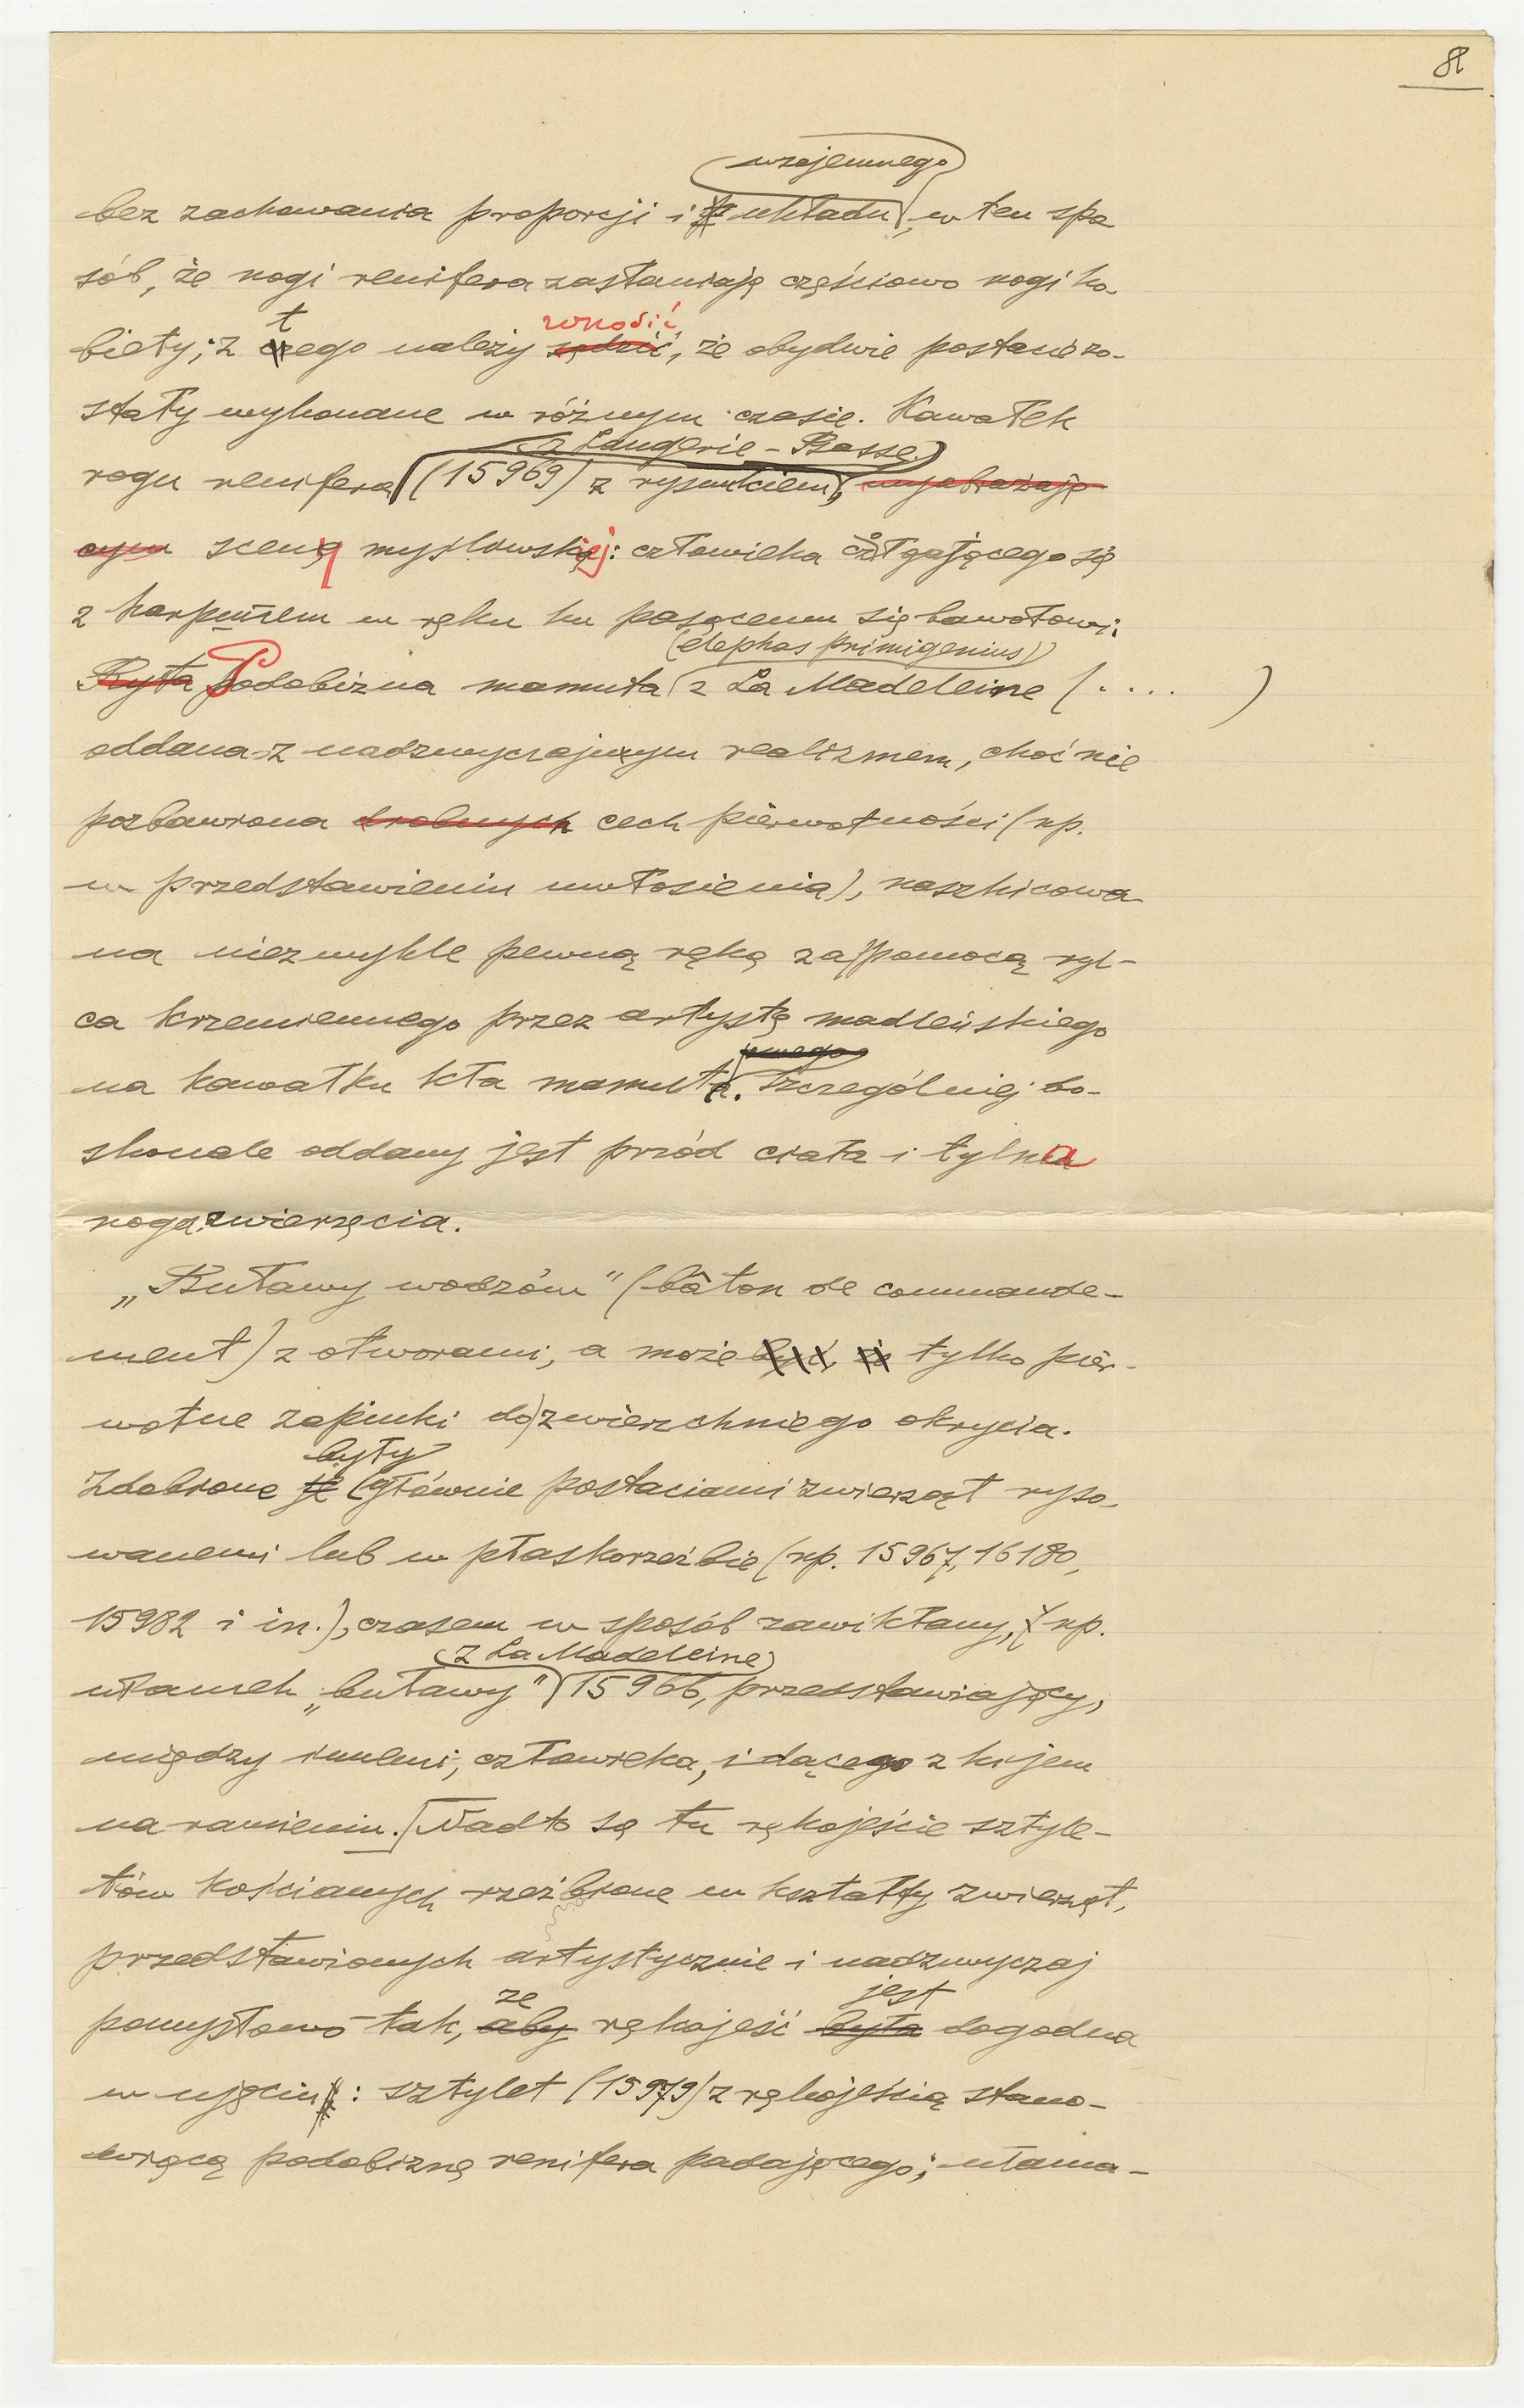 8
wzajemnego
bez zachowania proporcji i układu, w ten spo
sób, że nogi renifera zasłaniają częściowo nogi ko-
biety; z tego należy sądzić wnosić, że obydwie postacie zo-
stały wykonane w różnym czasie. Kawałek
z Laugerie-Basse
rogu renifera (15969) z rysunkiem, wyobrażają
cym sceny myśliwskiej: człowieka czołgającego się
z harpunem w ręku ku pasącemu się bawołowi;
(elephas primigenius)
Ryta Podobizna mamuta z La Madeleine (.... )
oddana z nadzwyczajnym realizmem, choć nie
pozbawiona drobnych cech pierwotności (np.
w przedstawieniu uwłosienia), naszkicowa-
na niezwykle pewną ręką za pomocą ryl-
ca krzemiennego przez artystę madleńskiego
na kawałku kła mamuta. Szczególniej do-
skonale oddany jest przód ciała i tylna
noga zwierzęcia.
„Buławy wodzów" (bâton de commande-
ment) z otworami, a może być że tylko pier-
wotne zapinki do zwierzchniego okrycia.
były
Zdobione są (głównie postaciami zwierząt ryso-
wanemi lub w płaskorzeźbie (np. 15967, 16180,
15982 i in.), czasem w sposób zawikłany, (np.
z La Madeleine
ułamek „buławy" 15966, przedstawiający,
między innemi, człowieka, idącego z kijem
na ramieniu. Nadto są tu rękojeście sztyle-
tów kościanych rzeźbione w kształty zwierząt,
przedstawionych artystycznie i nadzwyczaj
że jest
pomysłowo tak, aby rękojeść była dogodna
w ujęciu: sztylet (15979) z rękojeścią stano-
wiącą podobiznę renifera padającego; ułama-